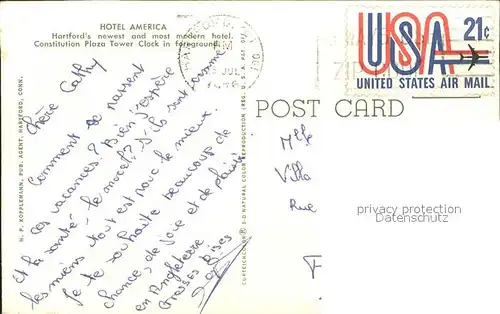 HOTEL AMERICA
Hartford's newest and most modern hotel.
Constitution Plaza Tower Clock in foreground.
H. P. KOPPLEMANN, PUB. AGENT, HARTFORD, CONN.
Chère Cathy
Comment se passent
ces vacances? Bien j'espère
Et la santé - le moral? S'ils sont comme
les miens tout est pour le mieux.
Je te souhaite beaucoup de
chance, de joie et de plaisir
en Angleterre
Grosses Bises
CURTEICHCOLOR® 3-D NATURAL COLOR REPRODUCTION (REG. U.S.A. PAT. OFF.)
JUL
USA 21¢
UNITED STATES AIR MAIL
POST CARD
Mlle
Villa
Rue
F
privacy protection
Datenschutz